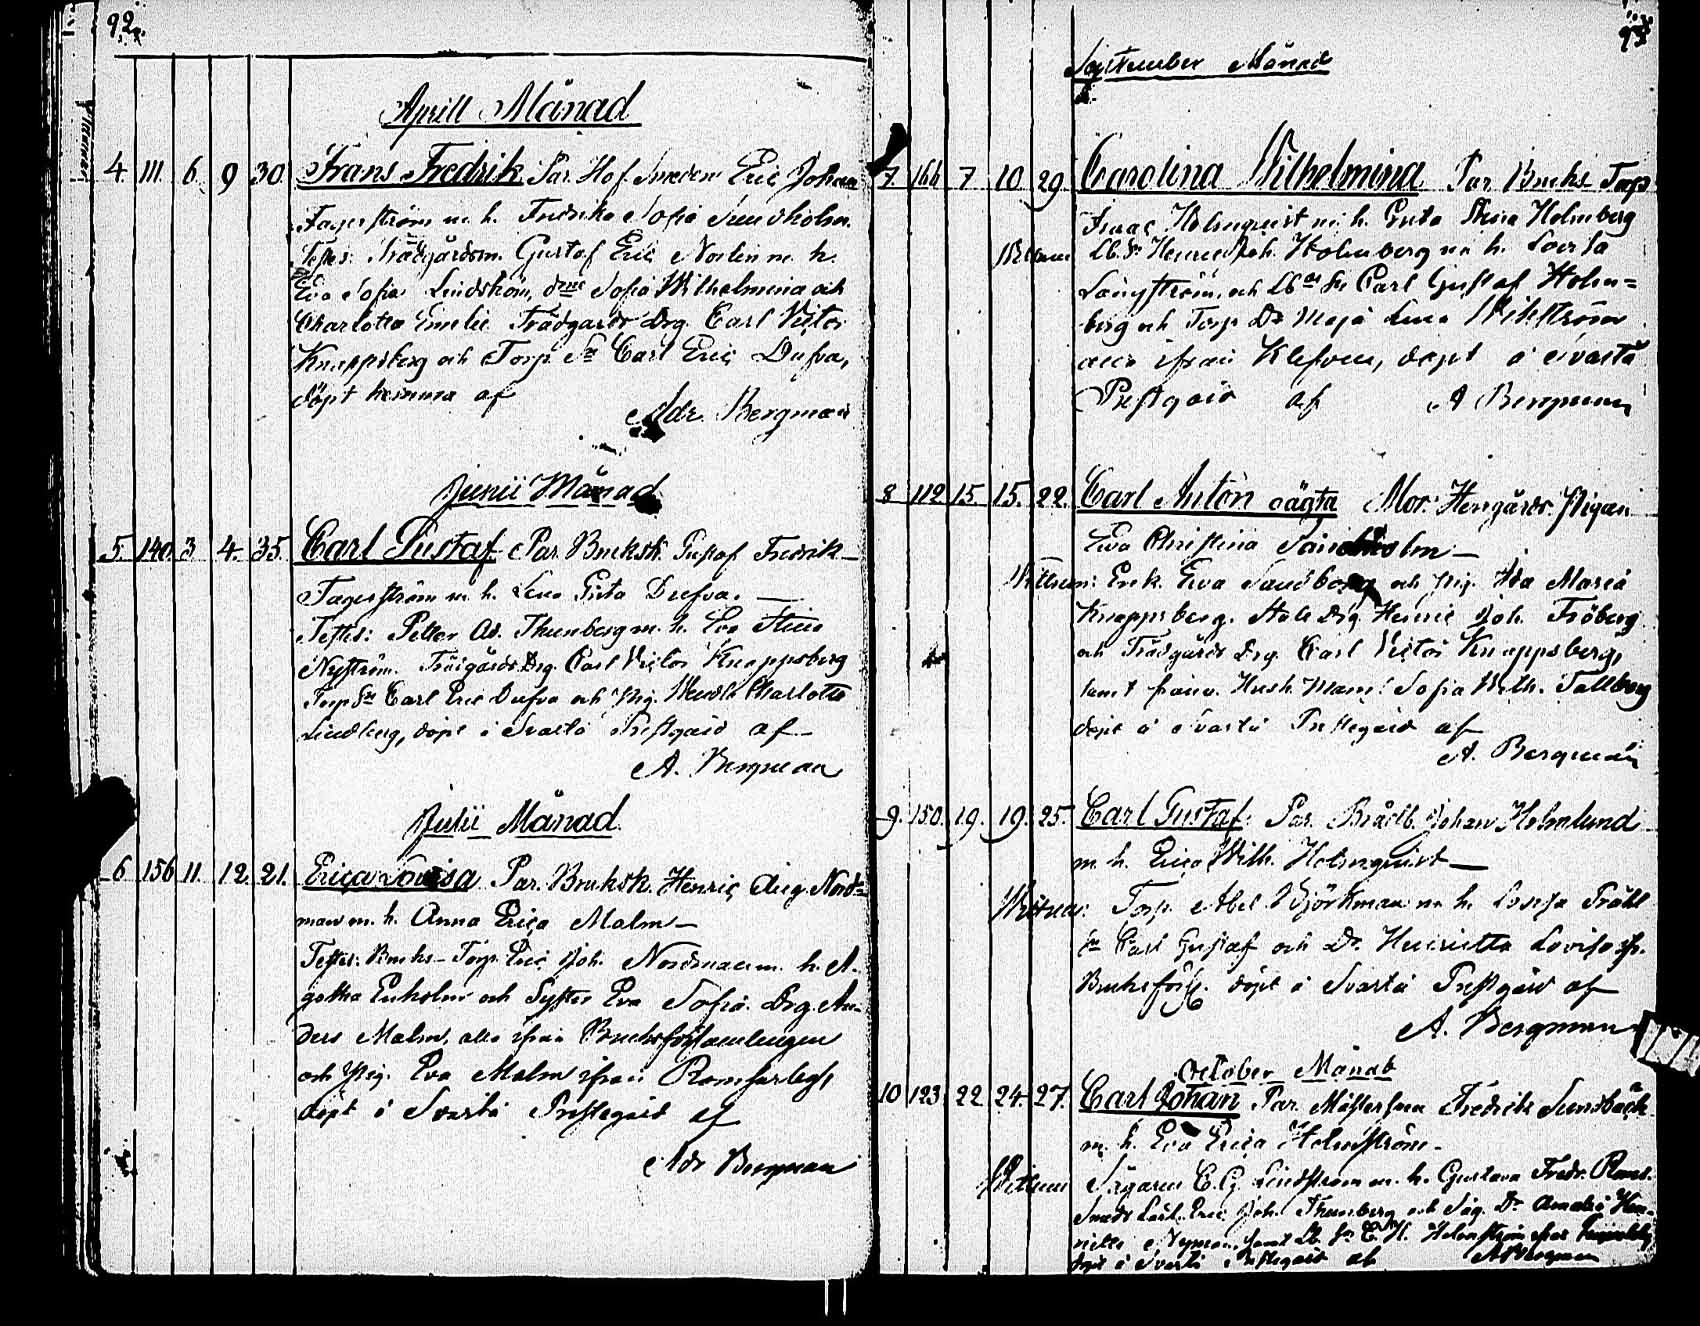 92.
Aprill Månad
4. 111. 6. 9. 30. Frans Fredrik Par. Hof Smeden Eric Johan
Fagerström m. h. Fredrika Sofia Sundholm.
Testes: Trädgårdsm. Gustaf Eric Norlin m. h.
Eva Sofia Lindström, Sofia Wilhelmina och
Charlotta Emelie Trädgårds Drg. Carl Victor
Knappsberg och Torp. Sn Carl Eric Dufva,
döpt hemma af
Adr. Bergman
Junii Månad
5. 140. 3. 4. 35. Carl Gustaf Par. Bruksk. Gustaf Fredrik
Fagerström m. h. Lena Greta Dufva.
Testes: Petter Ad. Thunberg m. h. Eva Stina
Nyström. Trädgårds Drg. Carl Victor Knappsberg
Torp Sn Carl Eric Dufva och Pig. Charlotta
Lindberg, döpt i Svartå Prestgård af
A. Bergman
Julii Månad
6. 156. 11. 12. 21. Erica Lovisa Par. Bruksk. Henric Aug. Nord-
man m. h. Anna Erica Malm
Testes: Bruks-Torp. Eric Joh. Nordman m. h. A-
gatha Enholm och Syster Eva Sofia. Drg. An-
ders Malm, alla ifrån Bruksförsamlingen
och Pig. Eva Malm ifrån
döpt i Svartå Prestegård af
Adr Bergman
93
September Månad
7. 166. 7. 10. 29. Carolina Wilhelmina Par. Bruks-Torp
Isaac Holmqvist m. h. Greta Stina Holmberg
Lb. Sn Henric Joh. Holmberg m. h. Lovisa
Långström, och Lb. Sn Carl Gustaf Holm=
berg och Torp. Dr Maja Lena Wikström
alla ifrån Klefven, döpt i Svartå
Prestgård af A Bergman
8. 112. 15. 15. 22. Carl Anton oägta Mor: Herrgårds Pigan
Eva Christina
Wittnen: Enk. Eva Sandborg och Pig. Ida Maria
Knappsberg. Drg. Henric Joh. Fröberg
och Trädgårds Drg. Carl Victor Knappsberg,
samt Hush. Mams: Sofia Wilh. Tallberg
döpt i Svartå Prestegård af
A. Bergman
9. 150. 19. 19. 25. Carl Gustaf: Par. Johan Holmlund
m h. Erica Wilh. Holmqvist
Wittnen: Torp. Abel Björkman m h. Lovisa
Sn Carl Gustaf och Dr. Henrietta Lovisa
Bruksförs. döpt i Svartå Prestgård af
A. Bergman
October Månad
10. 123. 22. 24. 27. Carl Johan Par. Mästersven Fredrik Sundbäck
m. h. Eva Erica Holmström
Wittnen Sågaren C. G. Lindström m. h. Gustava Fredr.
Smeds Lärl. Eric Joh. Thunberg och Såg. Dr Amalia Hen-
rietta Nyman, samt Lb. Sn C. H. Holmström
döpt i Svartå Prestegård af A Bergman